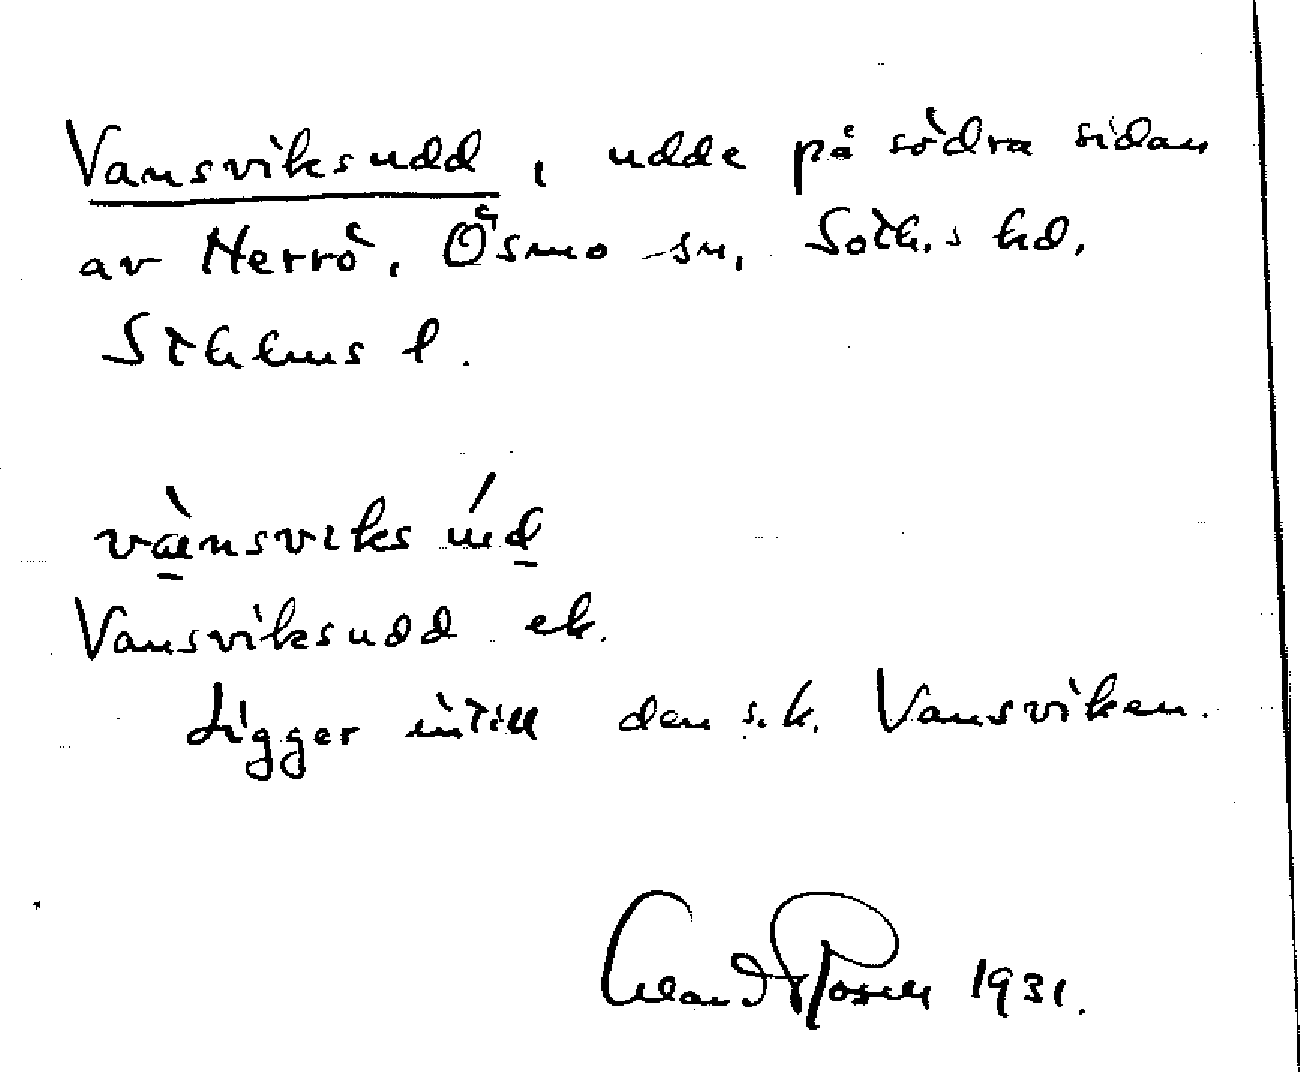 Vansviksudd, udde på södra sidan
av Herrö, Ösmo sn, Soth.s hd,
Sthlms l.
vànsviks úd
Vansviksudd ek.
Ligger intill den s.k. Vansviken.
1931.